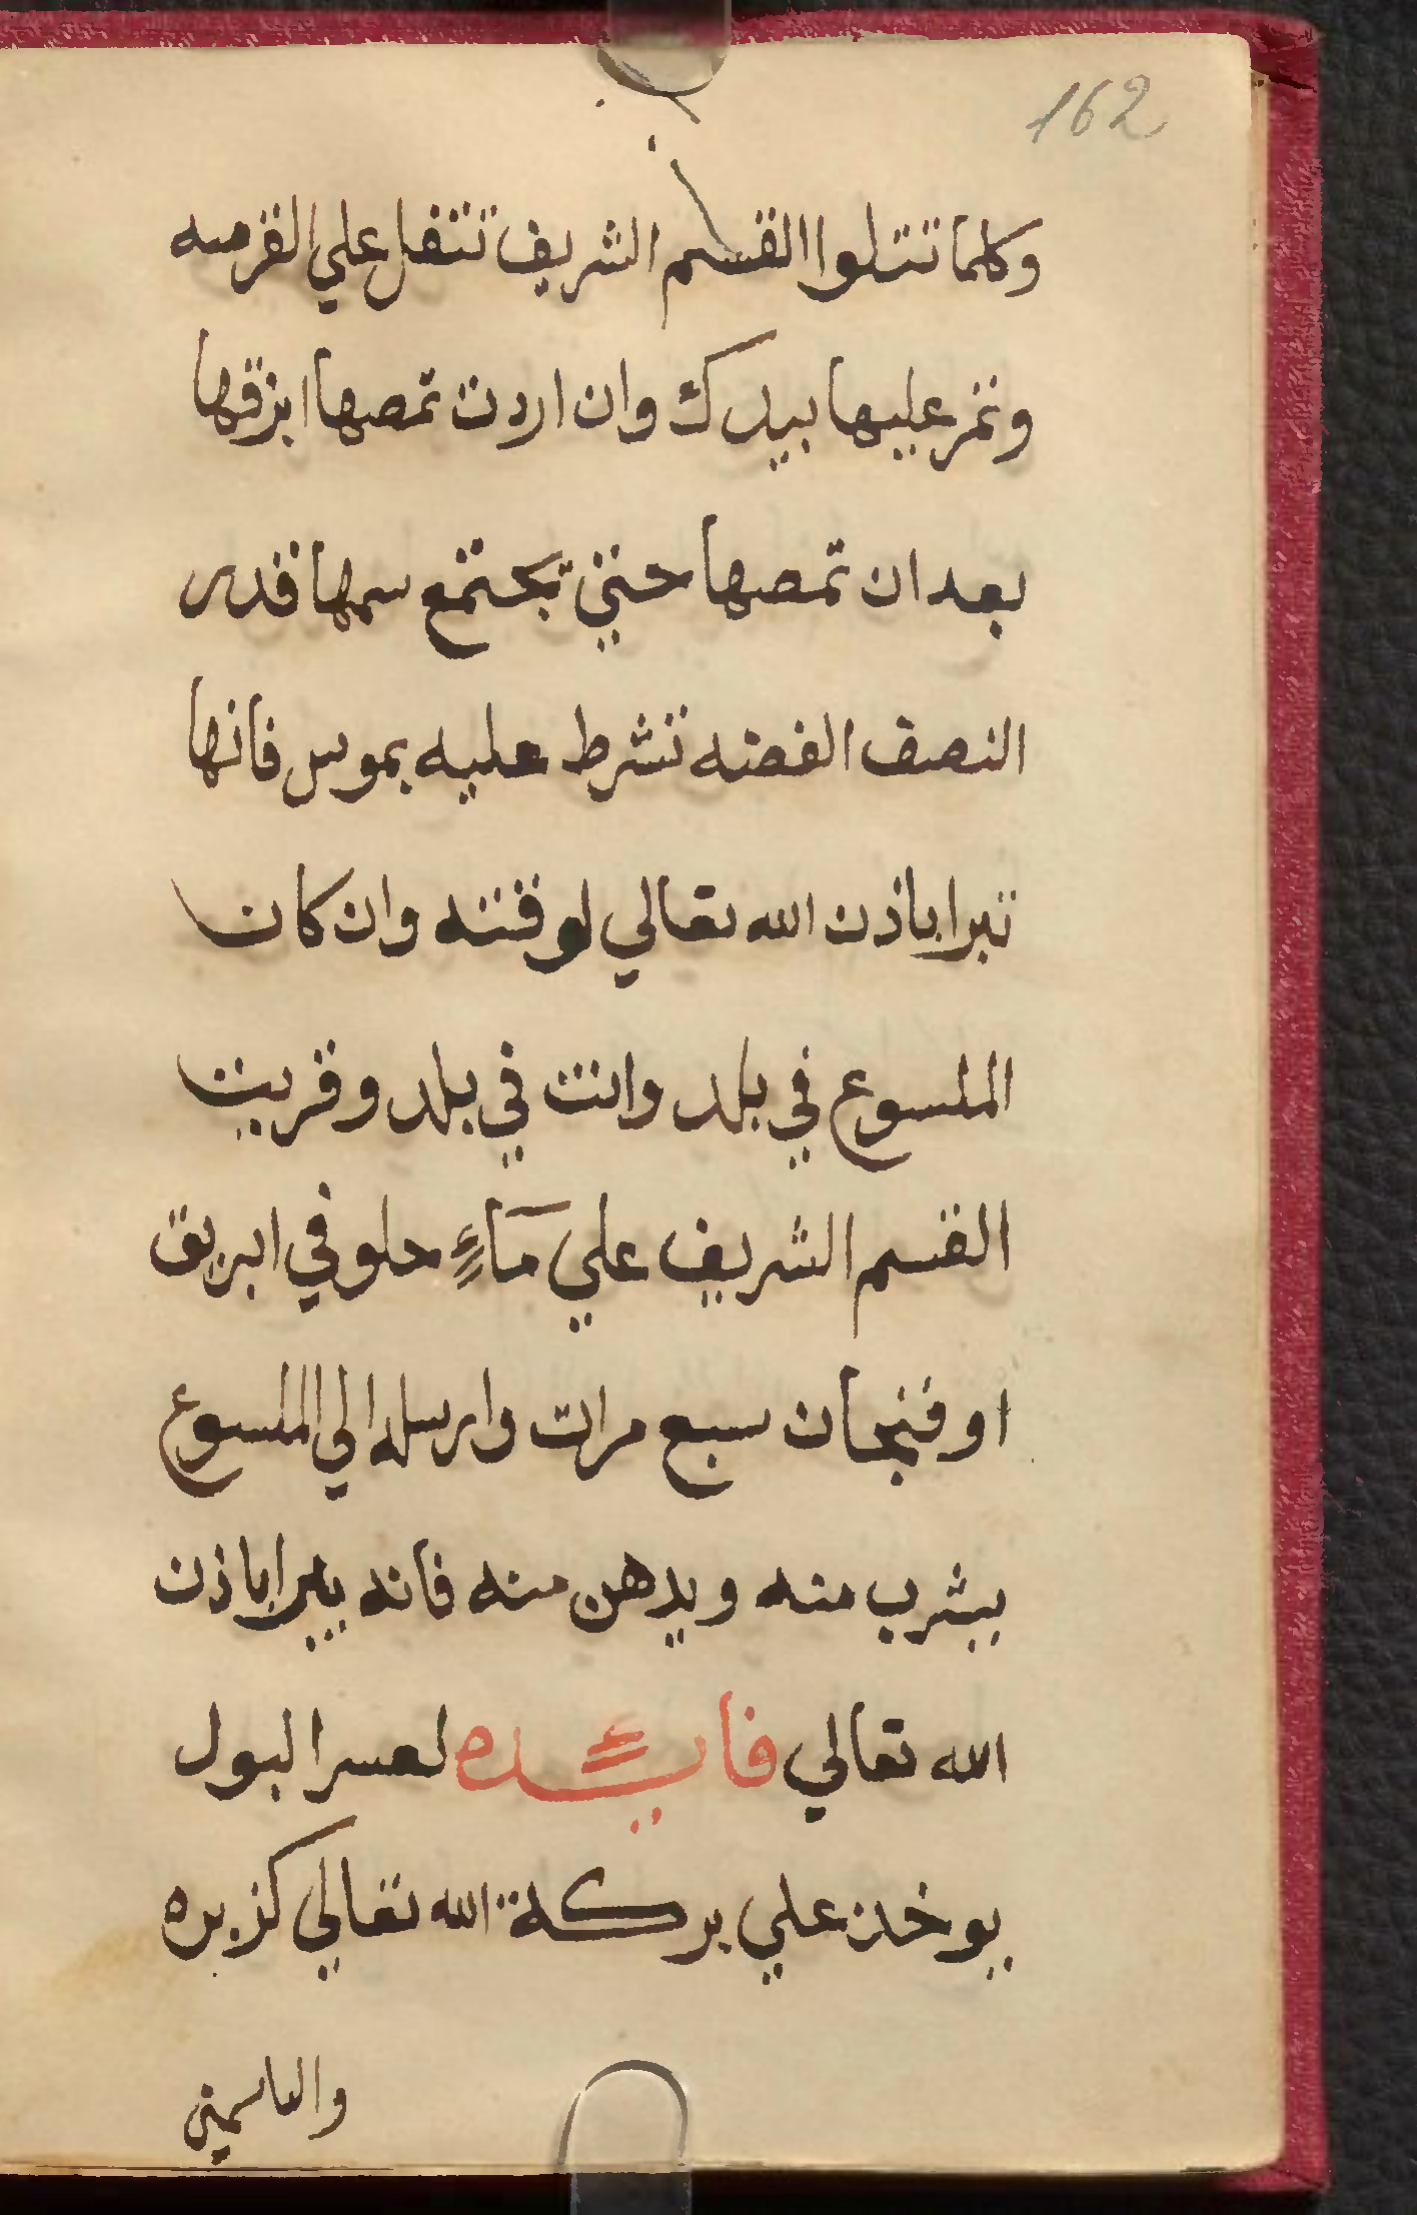 162
وكلما تتلوا القسم الشريف تتفل علي القرصه
وتمر عليها بيدك وان اردت تمصها ابزقها
بعد ان تمصها حتي يجتمع سمها قدر
النصف الفضه تشرط عليه بموس فانها
تبرا باذن الله تعالي لوقته وان كان
الملسوع في بلد وانت في بلد وقريت
القسم الشريف علي مآءٍ حلو في ابريق
او فنجان سبع مرات وارسله الي الملسوع
يشرب منه ويدهن منه فانه يبرا باذن
الله تعالي فايدة لعسر البول
يوخذ علي بركة الله تعالي كزبره
والياسمين